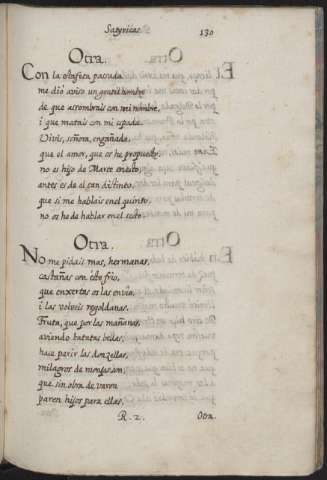 Satyricas. 130
Otra.
Con la estafeta pasada
me dió aviso un gentilhombre
de que assombrais con mi nombre,
i que matais con mi espada.
Vivis, señora, engañada,
que el amor, que os he propuesto,
no es hijo de Marte en esto,
antes es de él tan distinto,
que si me hablais en el quinto,
no os he de hablar en el sexto.
Otra.
No me pidais mas, hermanas,
castañas con este frio,
que enxertas os las envio,
i las volveis regoldanas.
Fruta, que por las mañanas,
aviendo batatas bellas,
hace parir las donzellas,
milagros de monja son,
que sin obra de varon
paren hijos para ellas.
R. 2. Otra